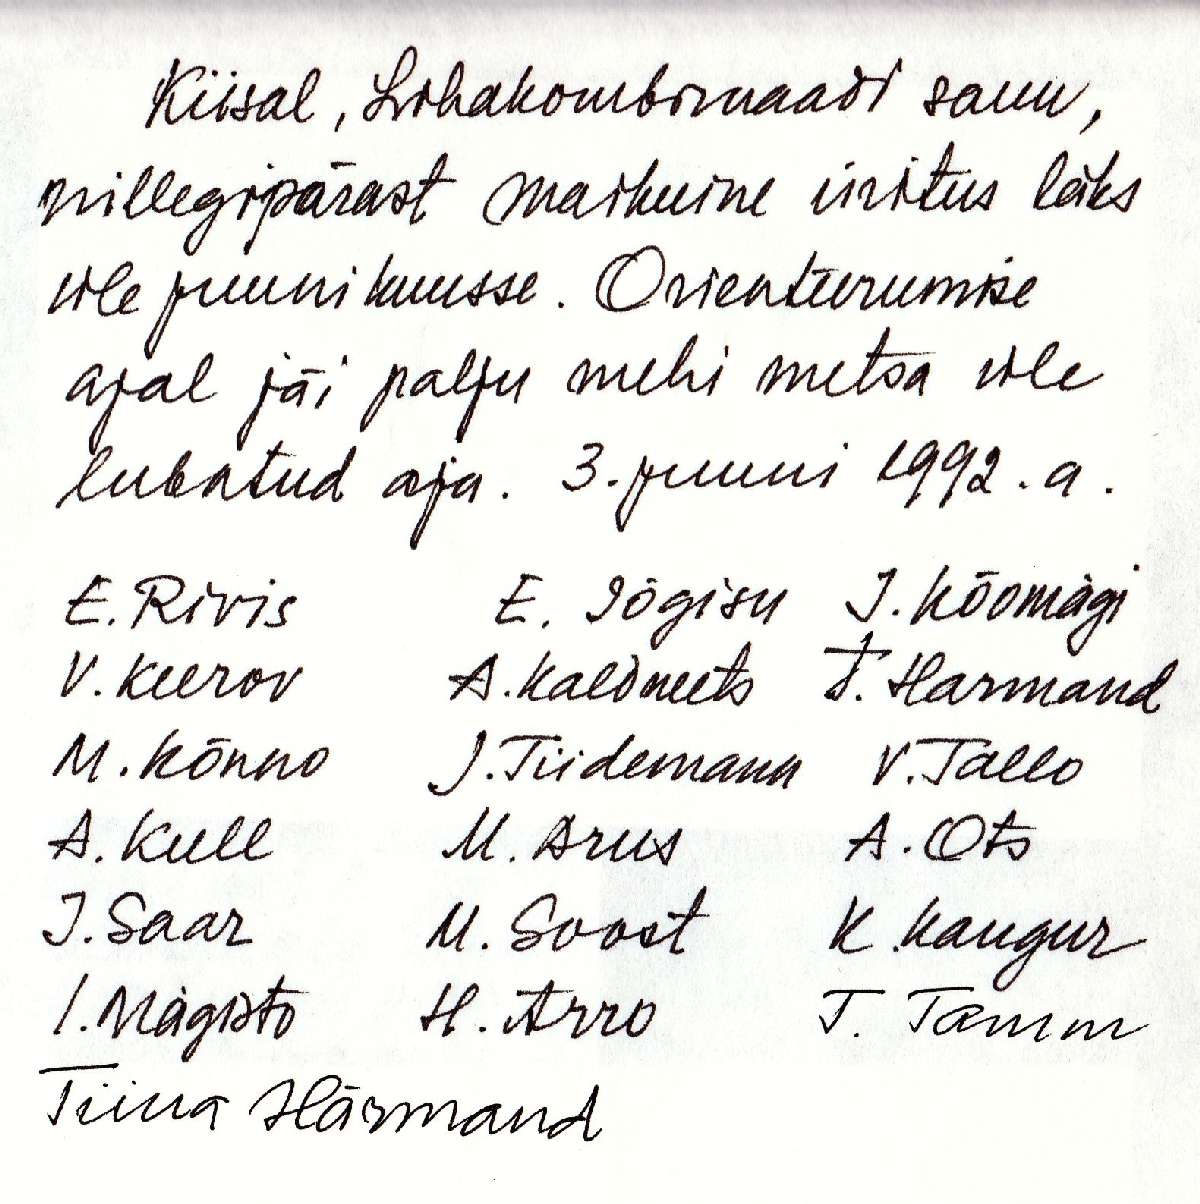 Kiisal, Lihakombinaadi saun,
millegipärast maikuine üritus läks
üle juunikuusse. Orienteerumise
ajal jäi palju mehi metsa üle
lubatud aja. 3. juuni 1992. a.
E. Rivis E. Jõgisu J. Kõomägi
V. Keerov A. Kaldmets T. Harmand
M. Kõnno J. Tiidemann V. Tallo
A. Kull M. Arus A. Ots
J. Saar M. Soost K. Kangur
I. Mägisto H. Arro T. Tamm
Tiina Härmand